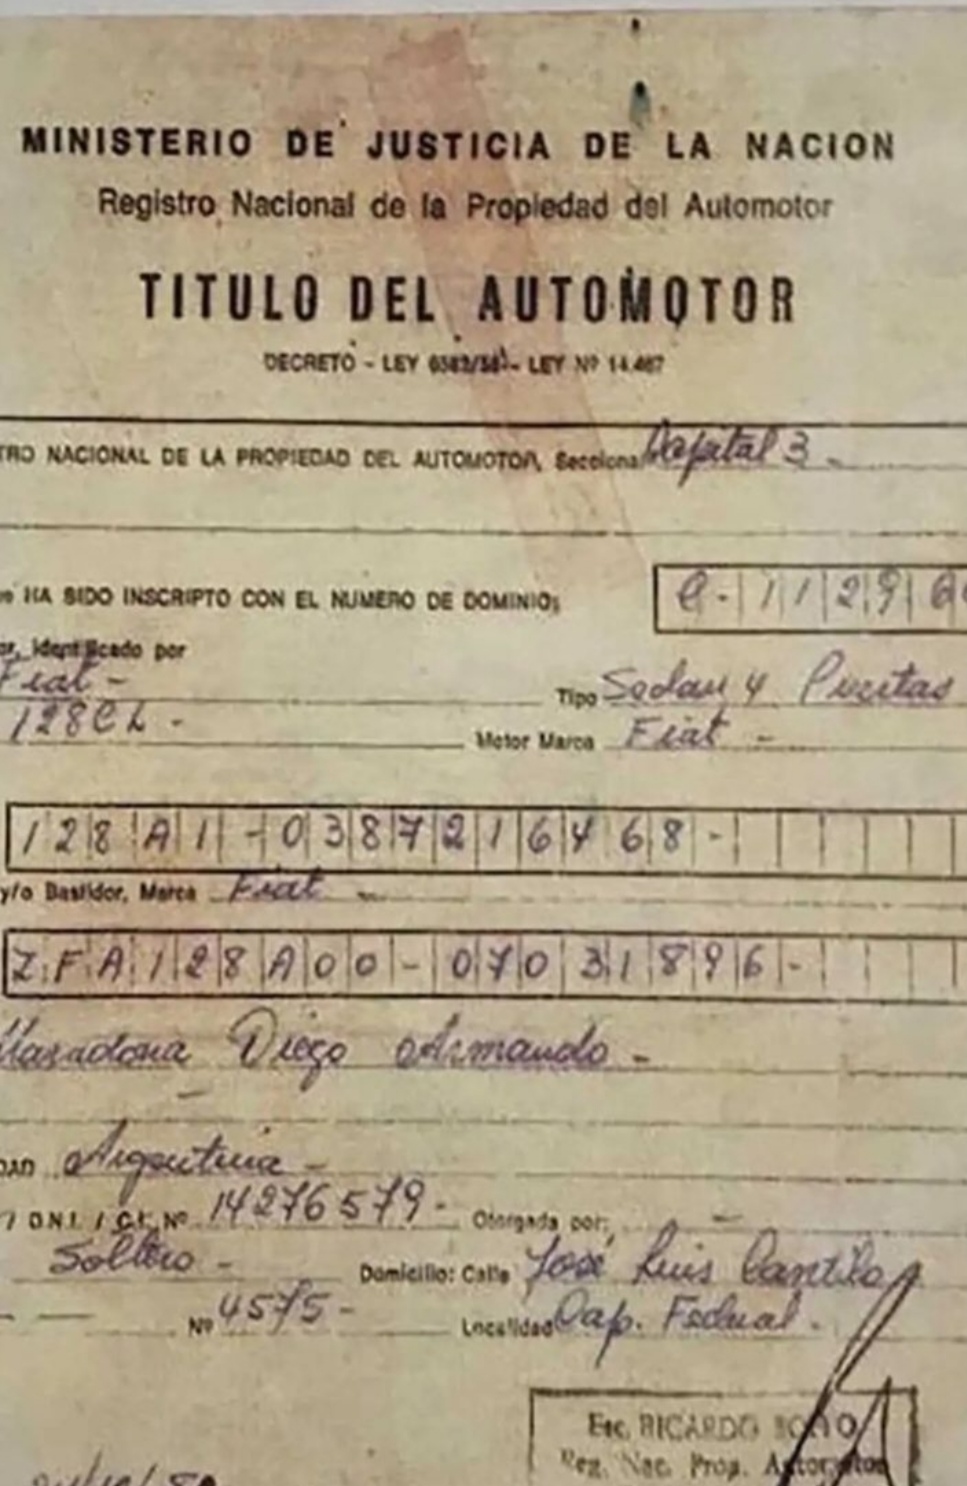 MINISTERIO DE JUSTICIA DE LA NACION
Registro Nacional de la Propiedad del Automotor
TITULO DEL AUTOMOTOR
DECRETO - LEY 6582/58 - LEY Nº 14.467
TRO NACIONAL DE LA PROPIEDAD DEL AUTOMOTOR, Seccional Capital 3 -
HA SIDO INSCRIPTO CON EL NUMERO DE DOMINIO: C-11290
or, identificado por
Fiat - Tipo Sedan 4 Puertas
128CL - Motor Marca Fiat -
128A1-0387216468-
y/o Bastidor, Marca Fiat -
ZFA128A00-07031896-
Maradona Diego Armando -
DAD Argentina -
/ D.N.I. / C.I. Nº 14276579 - Otorgada por: -
Soltero - Domicilio: Calle José Luis Cantilo
Nº 4575 - Localidad Cap. Federal.
Esc. RICARDO
Reg. Nac. Prop. Automotor